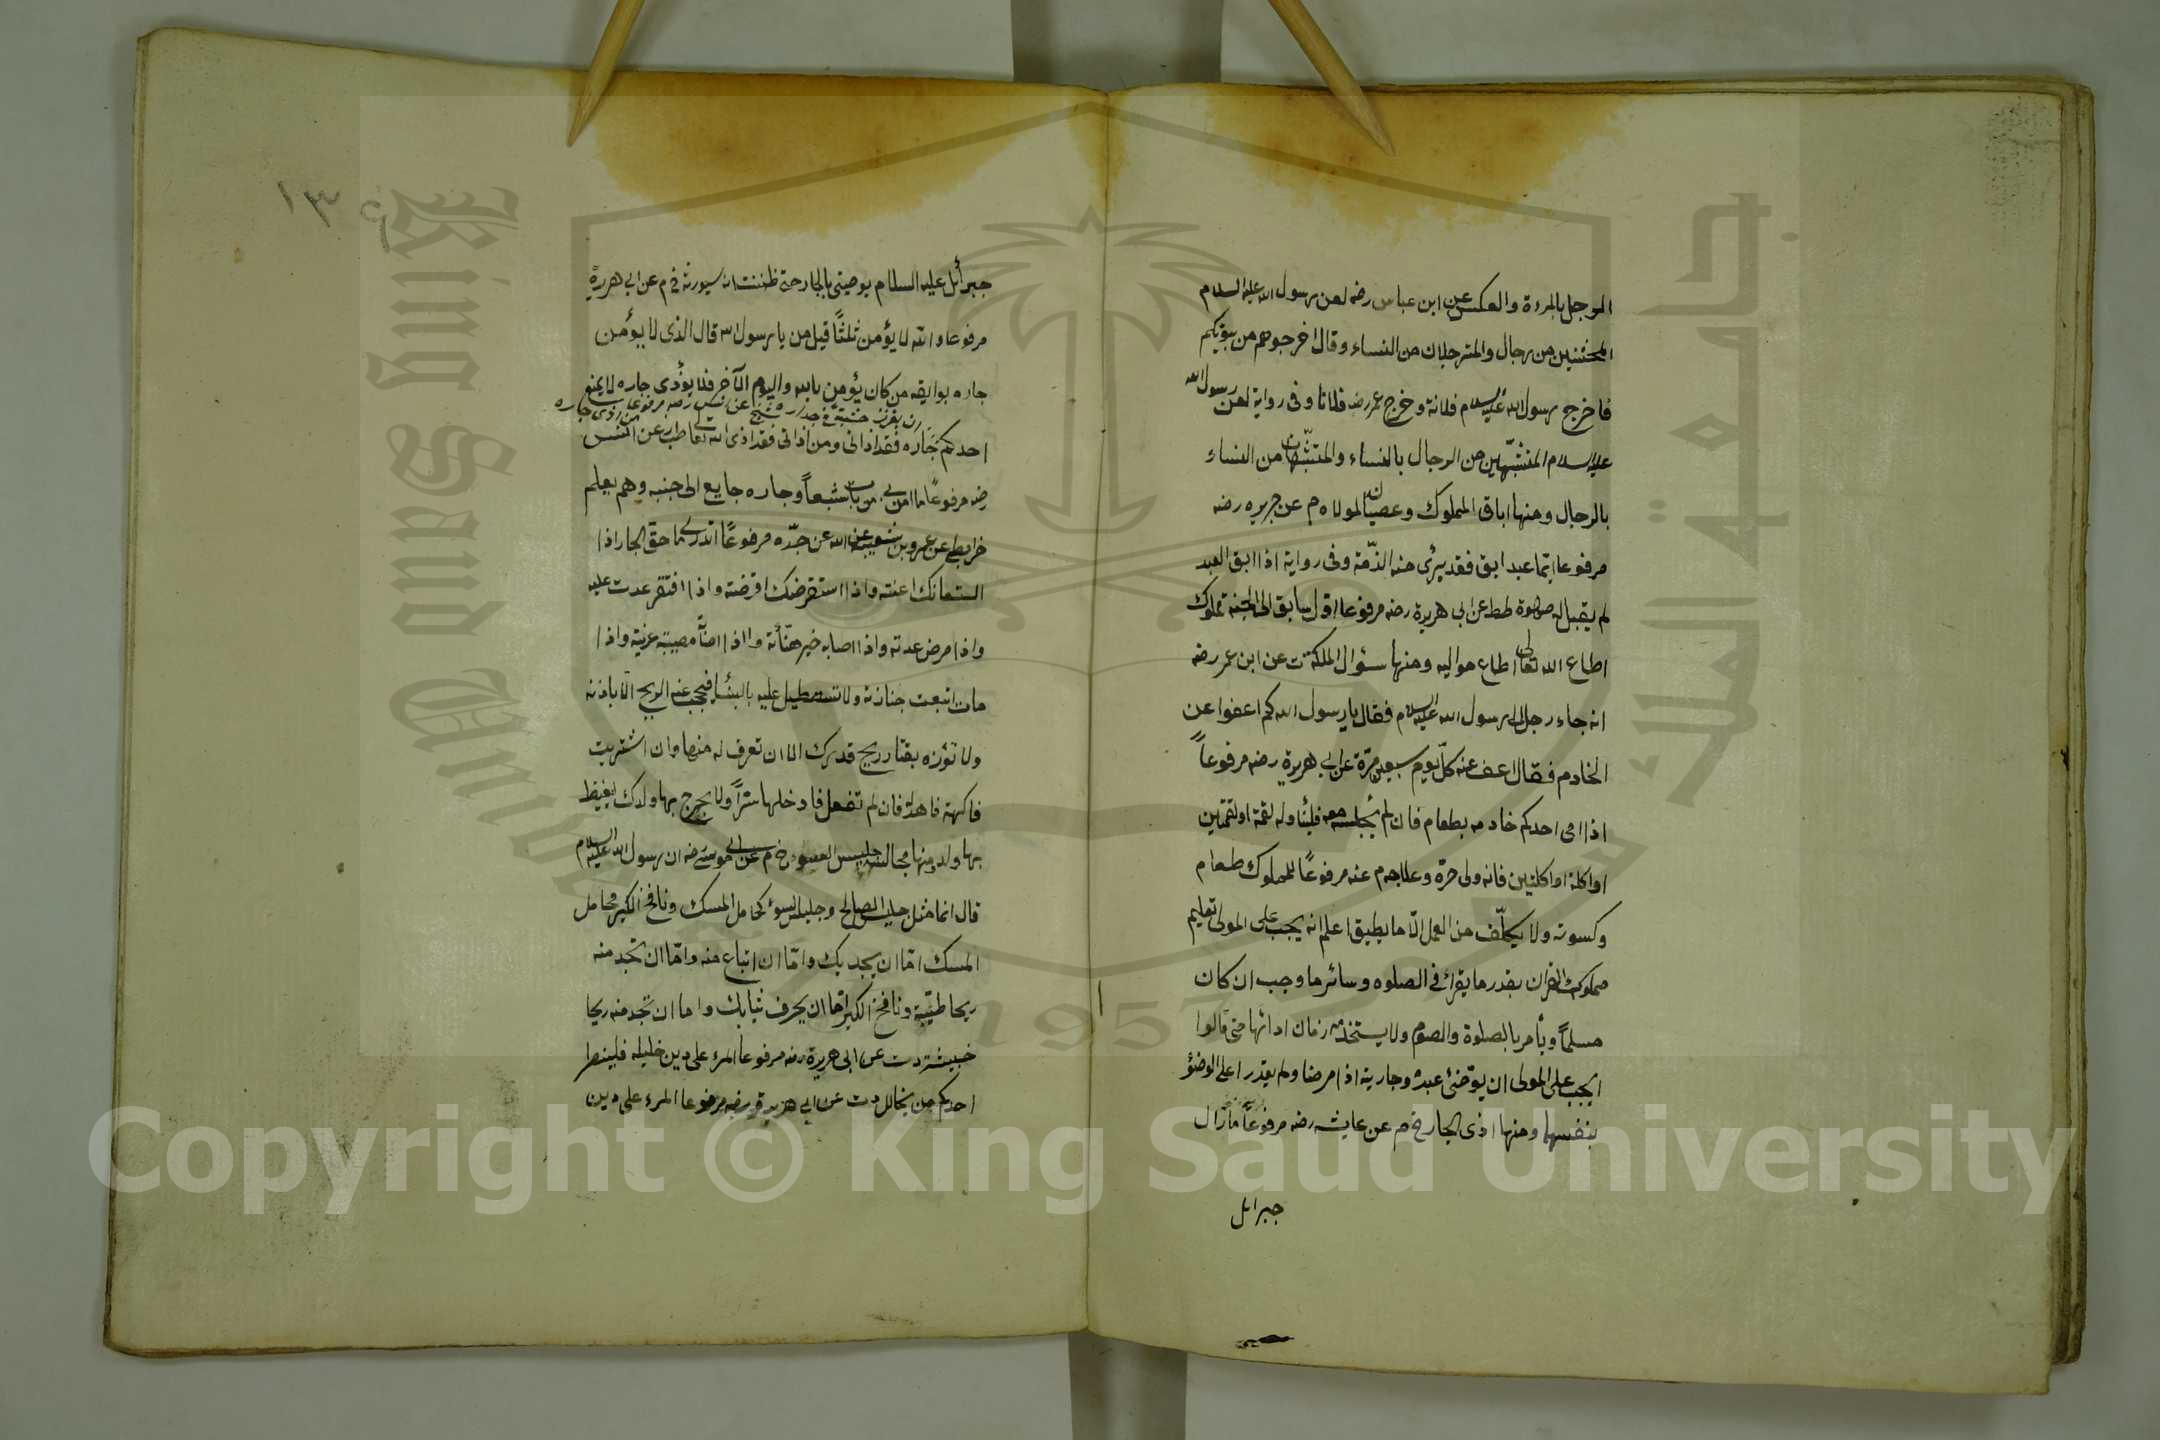 الرجل بالمرءة والعكس عن ابن عباس رضه لعن رسول الله عليه السلام
المخنثين من رجال والمترجلات من النساء وقال اخرجوهم من بيوتكم
فاخرج رسول الله عليه السلام فلانة وخرج عمر رضه فلانا وفى رواية لعن رسول الله
عليه السلام المتشبّهين من الرجال بالنساء والمتشبّهات من النساء
بالرجال ومنها اباق المملوك وعصيانه لمولاه م عن جريره رضه
مرفوعا ايّما عبد ابق فقد برئ منه الذّمة وفى رواية اذا ابق العبد
لم يقبل له صلوة طط عن ابى هريرة رضه مرفوعا اوّل سابق الى الجنة مملوك
اطاع الله تعالى اطاع مواليه ومنها سؤال الملكة ت عن ابن عمر رضه
انه جاء رجل الى رسول الله عليه السلام فقال يا رسول الله كم اعفوا عن
الخادم فقال اعف عنه كلّ يوم سبعين مرّة عن ابى هريرة رضه مرفوعاً
اذا اتى احدكم خادمه بطعام فان لم يجلسه معه فليناوله لقمة او لقمتين
او اكلة او اكلتين فانه ولى حرّه وعلاجه م عنه مرفوعاً للمملوك طعام
وكسوته ولا يكلّف من العمل الّا ما يطيق اعلم انه يجب على المولى تعليم
مملوكه القران بقدر ما يقراء فى الصلوه وسائر ما وجب ان كان
مسلماً ويأمر بالصلوة والصوم ولا يستخدمه زمان ادائها حتى قالوا
ايجب على المولى ان يوّضئ عبده وجاريته اذا مرضا ولم يقدر اعلى الوضوٴ
بنفسهما ومنها اذى الجار خ م عن عايشه رضه مرفوعاً ما زال
جبرائل
١٣
جبرأئل عليه السلام يوصينى بالجار حتى ظننت انه سيورثه خ م عن ابى هريرة
مرفوعا والله لا يؤمن ثلثاً قيل من يا رسول الله قال الذى لا يؤمن
جاره بوايقه من كان يؤمن بالله واليوم الآخر فلا يؤذى جاره لا يمنع
ان يغرز خشبة فى جداره عن انس رضه مرفوعا من اذى جاره
احدكم جاره فقد اذانى ومن اذانى فقد اذى الله تعالى طب عن انس
رضه مرفوعاً ما امن بى من بات شبعاً وجاره جايع الى جنبه وهم يعلم
خرايطى عن عمرو بن شعيب عن ابيه عن جدّه مرفوعاً اتدرى ما حق الجار اذا
استعانك اعنته واذا استقرضك اقرضته واذا افتقر عدت عليه
واذا مرض عدته واذا اصابه خير هنّأته واذا اصابته مصيبة عزيته واذا
مات اتبعت جنازته ولا تستطيل عليه بالبنٓاء فيحجب عنه الريح الّا باذنه
ولا تؤذه بقتار ريح قدرك الا ان تعرف له منها وان اشتريت
فاكهة فاهد له فان لم تفعل فادخلها سرّاً ولا يخرج بها ولدك ليغيظ
بها ولده ومنها مجالسة جليس السوء خ م عن ابى موسى رضه ان رسول الله عليه السلام
قال انما مثل جليس الصالح وجليس السوٴ كحامل المسك ونافخ الكير فحامل
المسك امّا ان يجديك وامّا ان ابتاع منه وامّا ان تجد منه
ريحا طيّبة ونافخ الكير امّا ان يحرف ثيابك واما ان تجد منه ريحا
خبيشة د ت عن ابى هريرة رضه مرفوعا المرء على دين خليله فلينصر
احدكم من يخالل د ت عن ابى هريرة رضه مرفوعا المرء على دين
جامعة الملك سعود
King Saud University
1957
Copyright © King Saud University